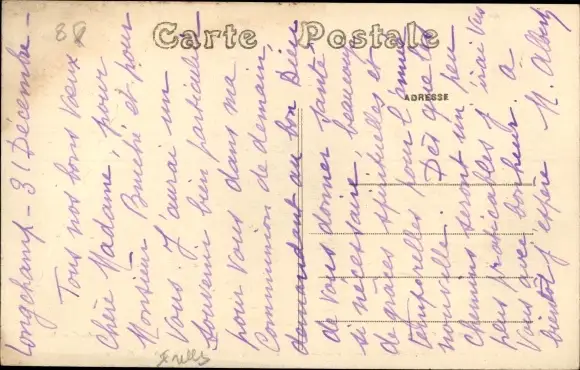 Carte Postale
ADRESSE
88
Longchamp - 31 Décembre -
Tous nos bons vœux
Chère Madame, pour
Monsieur et pour
Vous. J'aurai un
souvenir bien particulier
pour vous dans ma
Communion de demain,
demandant au bon Dieu
de vous donner santé
si nécessaire, beaucoup
de grâces spirituelles et
temporelles pour l'année
nouvelle. Dès que les
chemins seront un peu
plus praticables j'irai vous
Vous avec bonheur. A
bientôt j'espère M.